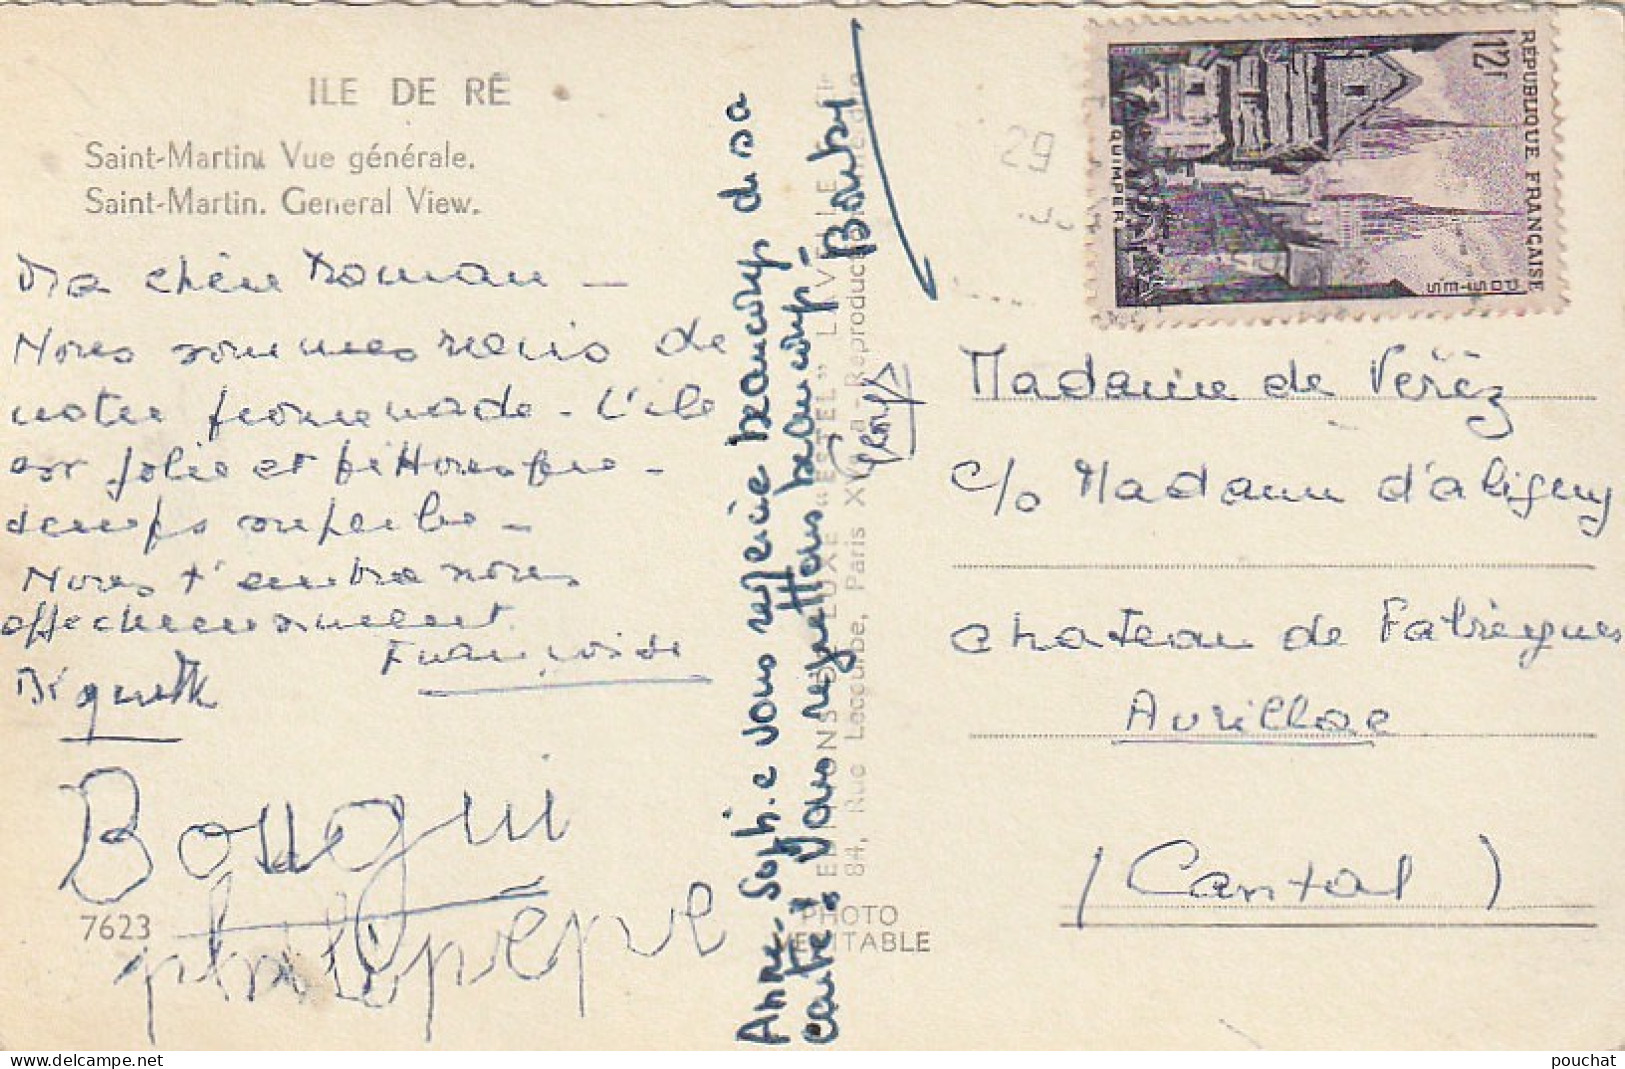 ILE DE RÉ
Saint-Martin. Vue générale.
Saint-Martin. General View.
Ma chère Maman —
Nous sommes ravis de
notre promenade - L'île
est jolie et pittoresque -
temps superbe -
Nous t'embrassons
affectueusement
Françoise
Bouqui
philippe
7623
Anne-Sophie vous remercie beaucoup de sa
carte, nous regrettons beaucoup,
ÉDITIONS DE LUXE "ESTEL" LAVELLE
84, Rue Lecourbe, Paris XVe - Reproduction
PHOTO
VÉRITABLE
29
RÉPUBLIQUE FRANÇAISE
12F
POSTES
QUIMPER
Madame de Véréz
c/o Madame d'aligny
chateau de Fabrègues
Aurillac
(Cantal)
pouchat